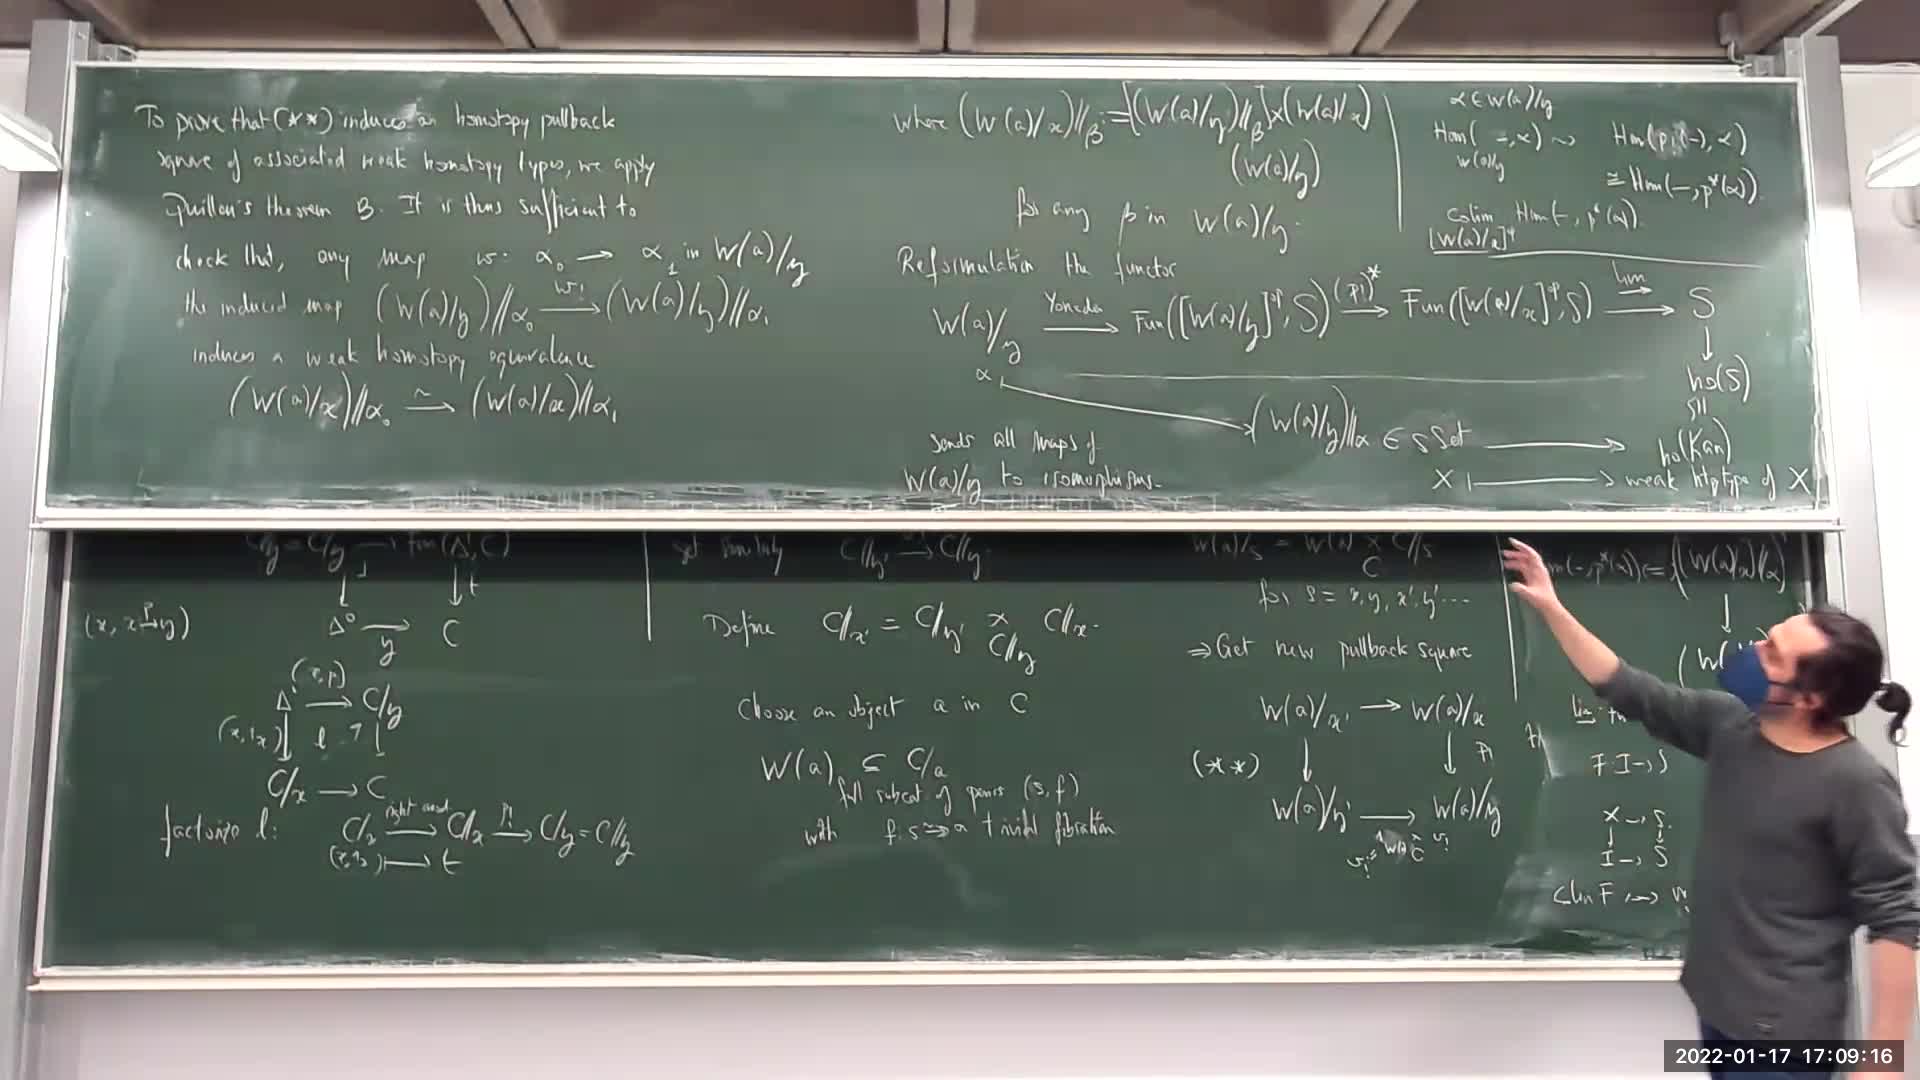 To prove that (**) induces an homotopy pullback
square of associated weak homotopy types, we apply
Quillen's theorem B. It is thus sufficient to
check that, any map w: α₀ → α₁ in W(a)/y
the induced map (W(a)/y)//α₀ —w!→ (W(a)/y)//α₁
induces a weak homotopy equivalence
(W(a)/x)//α₀ ~→ (W(a)/x)//α₁
where (W(a)/x)//β := [(W(a)/y)//β] × (W(a)/x)
(W(a)/y)
for any β in W(a)/y.
Reformulation the functor
W(a)/y —Yoneda→ Fun([W(a)/y]^op, S) —(p!)*→ Fun([W(a)/x]^op, S) —lim→ S
↓
ho(S)
α
(W(a)/y)//α ∈ sSet → ho(Kan)
sends all maps of
W(a)/y to isomorphisms.
X ↦ weak htp type of X
α ∈ W(a)/y
Hom(-, α) ⇝ Hom(p!(-), α)
W(a)/y
≅ Hom(-, p*(α)).
colim Hom(-, p*(α)).
[W(a)/x]^op
C//y = C/y → Fun(Δ¹, C)
↓ ↓ t
(x, x →p y)
Δ⁰ —y→ C
(x,p)
Δ⁰ → C/y
(x,1x) l
C/x → C
factorize l:
C/x —right anod→ C//x —p!→ C/y = C//y
(x,1x) ↦ t
get similarly C//y' → C//y
Define C//x' = C//y' × C//x.
C//y
Choose an object a in C
W(a) ⊆ C/a
full subcat of pairs (s, f)
with f: s ↠ a trivial fibration
W(a)/s = W(a) × C//s
C
for s = x, y, x', y' ...
⇒ Get new pullback square
W(a)/x' → W(a)/x
(**) ↓ ↓ p!
W(a)/y' → W(a)/y
Hom(-, p*(α)) ⇐ ((W(a)/x)//α)
↓
F: I → S
X → S.
↓ ↓
I → S